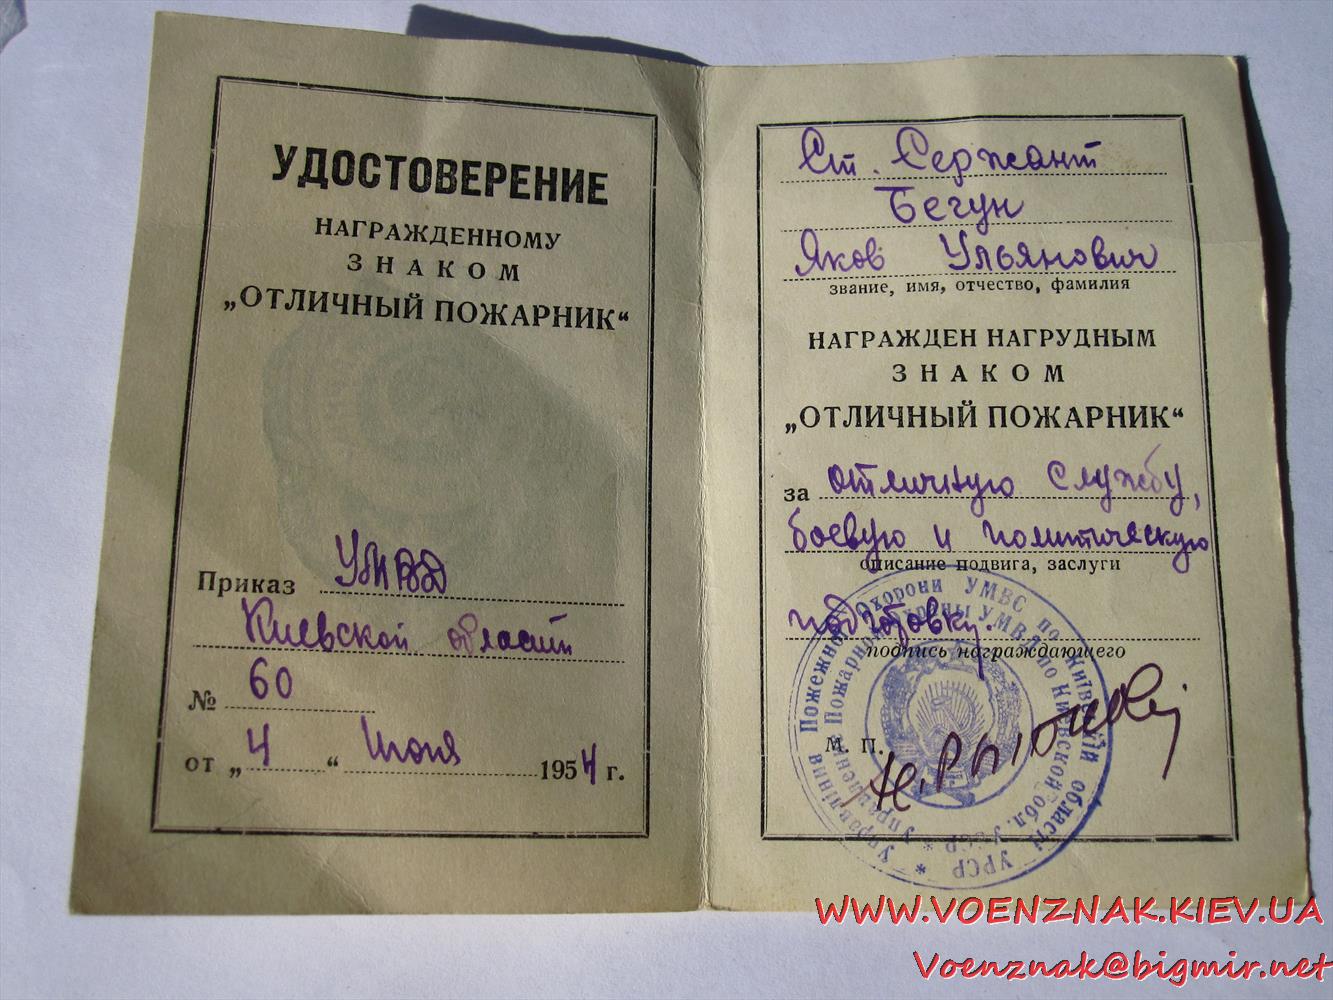 УДОСТОВЕРЕНИЕ
НАГРАЖДЕННОМУ
ЗНАКОМ
„ОТЛИЧНЫЙ ПОЖАРНИК“
Приказ УМВД
Киевской области
№ 60
от „4“ Июня 1954 г.
Ст. Сержант
Бегун
Яков Ульянович
звание, имя, отчество, фамилия
НАГРАЖДЕН НАГРУДНЫМ
ЗНАКОМ
„ОТЛИЧНЫЙ ПОЖАРНИК“
за отличную службу,
боевую и политическую
описание подвига, заслуги
подготовку.
подпись награждающего
М. П.
Управління Пожежної Охорони УМВС по Київській області УРСР *
Управление Пожарной Охраны УМВД по Киевской обл. УССР *
WWW.VOENZNAK.KIEV.UA
Voenznak@bigmir.net